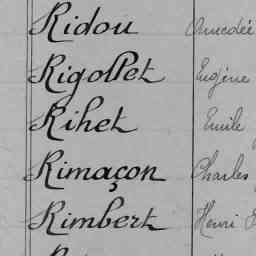 Ridou Amedée
Rigollet Eugène
Rihet Emile
Rimaçon Charles
Rimbert Henri